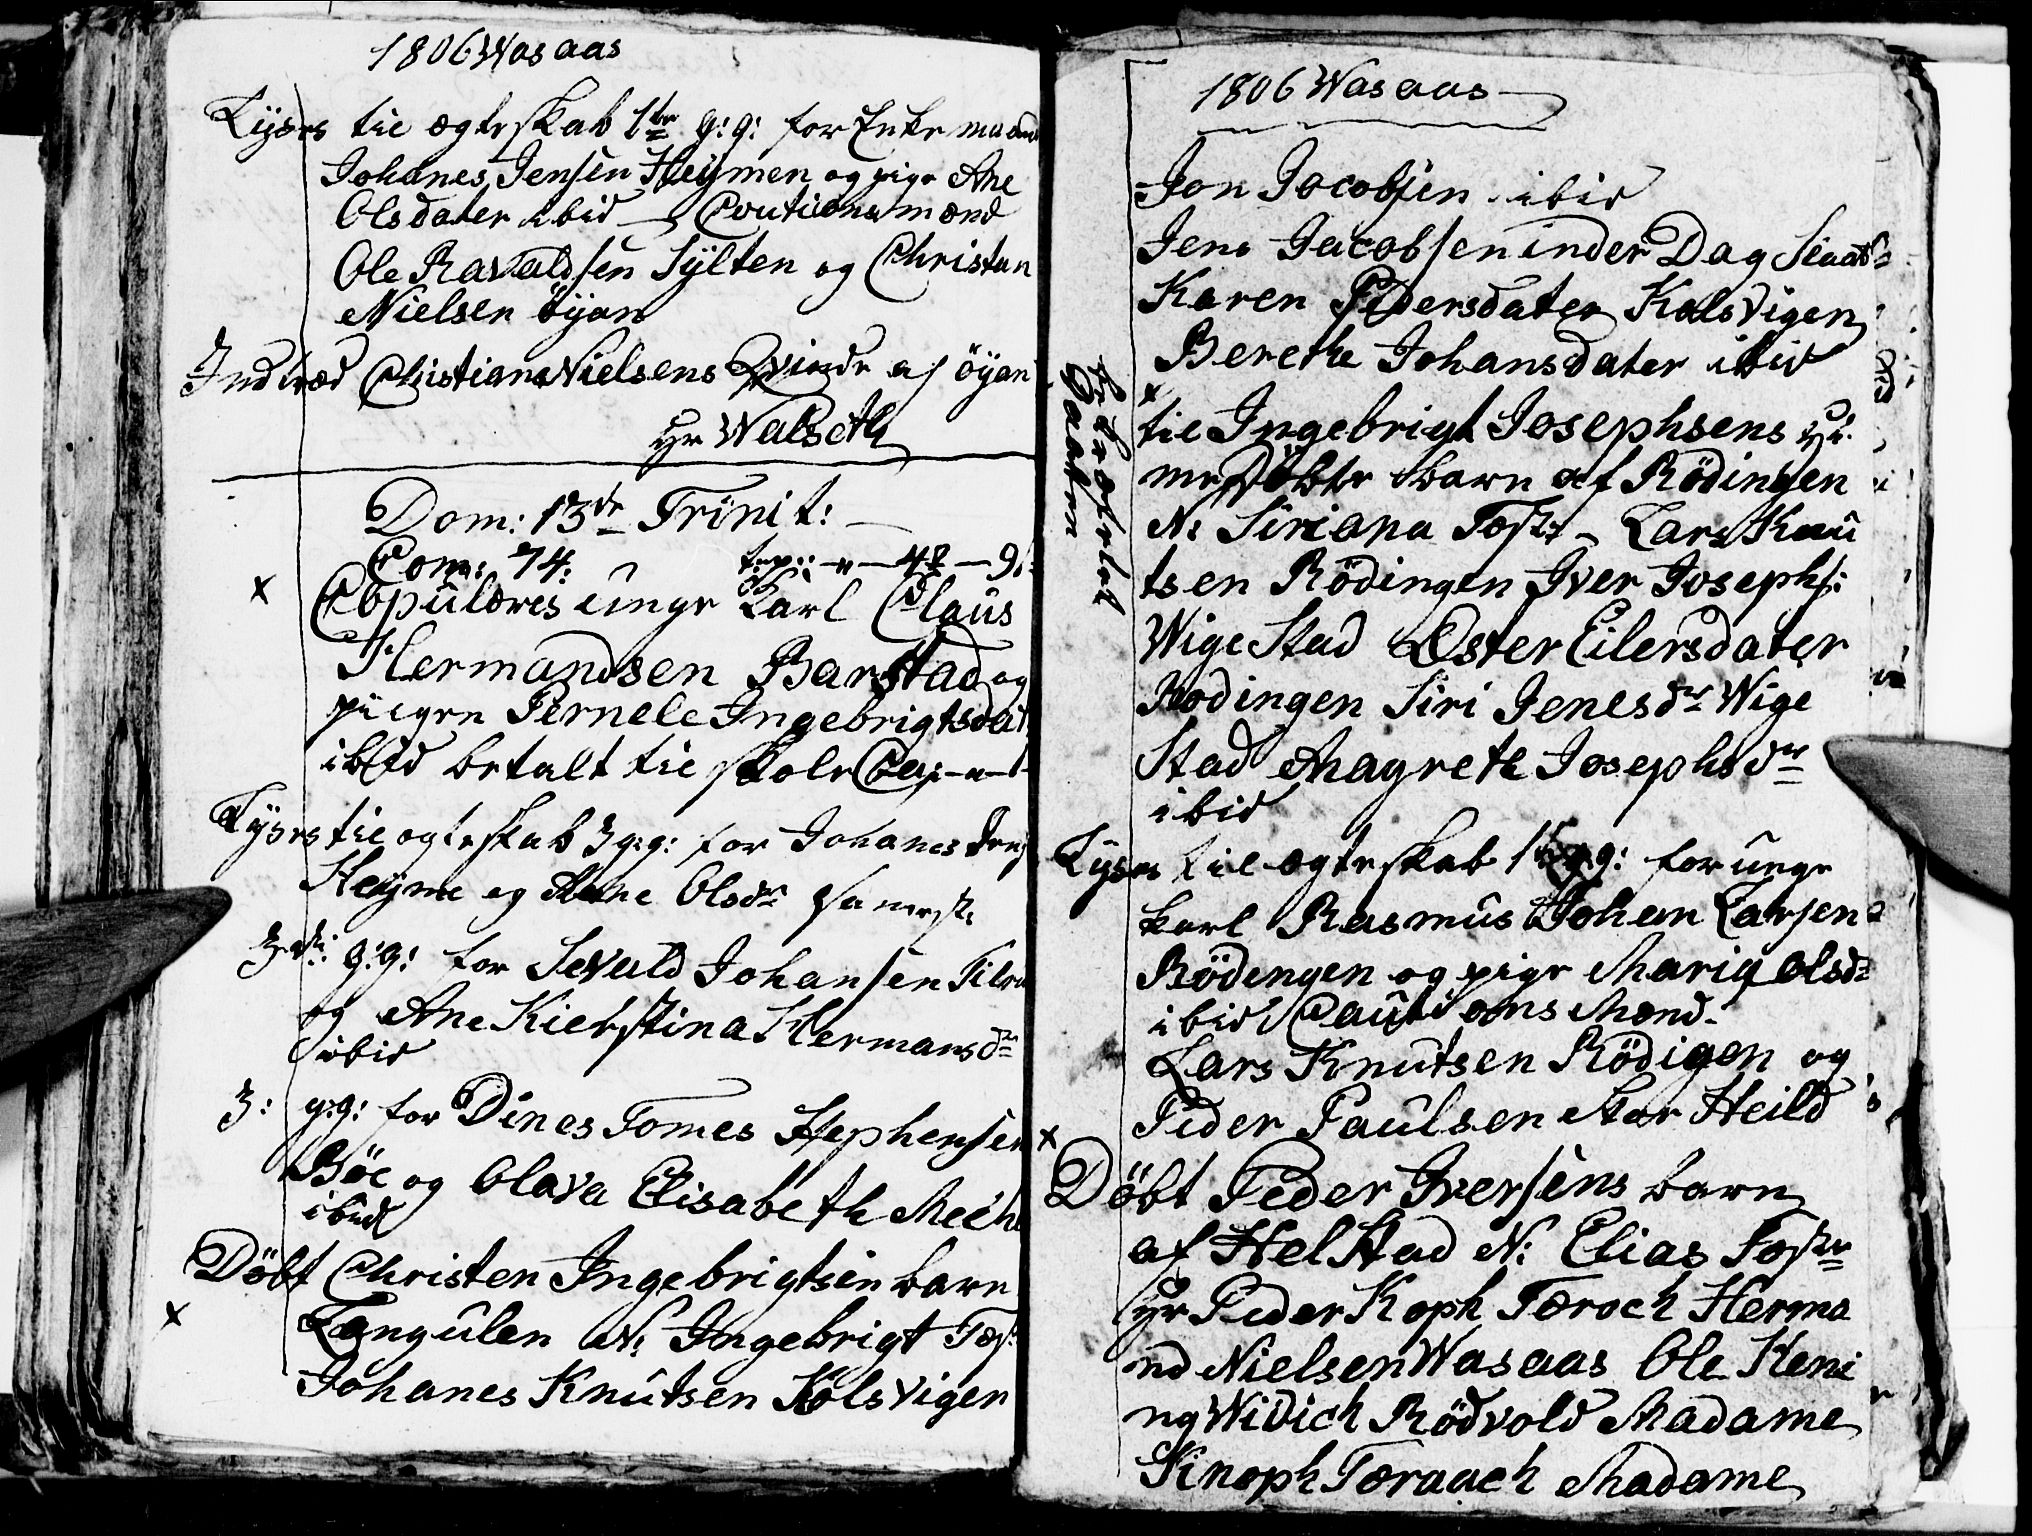 1806 Wasaas
Lyses til ægteskab 1te g: g: for Enke maand
Johanes Jensen Heymen og pige Ane
Olsdater ibid — Coutions mænd
Ole Ravaldsen Sylten og Christan
Nielsen öyan
Indtræd Christians Nielsens Qvinde af öyan
yr Walseth
Dom: 13de Trinit: —
Com: 74.
Copuleres unge Karl Claus
Hermandsen Barstad og
piigen Pernele Ingebrigtsdat
ibid betalt til skole
Lyses til ægteskab 3 g: g: for Johanes Jens
Heyme og Ane Olsdr samest:
3die: g: g: for Sevald Johansen
og Ane Kierstina Hermansdr
ibid
3: g: g: for Dines Tomes Stephensen
Böe og Olava Elisabeth
ibid
Döbt Christen Ingebrigtsen barn
Langulen N: Ingebrigt Fos:
Johanes Knutsen Kolsvigen
1806 Wasaas —
Jon Jacobsen ibid
Jens Jacobsen inder Dag
Karen Pedersdater Kalsvigen
Berethe Johansdater ibid
til Ingebrigt Josephsens
barn af Rödingen
N: Siriana Fost: — Lars Knu
tsen Rödingen Iver Josephs:
Wige Stad Oster Eilersdater
Rodingen Siri Jenesdr Wige
Stad Magrete Josephsdr
ibid
Lyses til ægteskab 1 g: for unge
karl Rasmus Johan Larsen
Rödengen og pige Maria Olsdr
ibid Cautions Mænd.
Lars Knutsen Rödigen og
Peder Paulsen Stor Heild
Döbt Peder Iversens barn
af Helstad N: Elias Fostr
yr Peder Koph Tæroch Herma
nd Nielsen Wasaas Ole Heni
ng Widich Rödvold Madame
Knoph Tæraach Madame